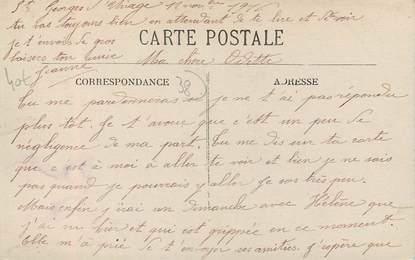 St Georges s/ Vivage 11 novbre 1916
tu vas toujours bien en attendant de te lire et te voir
je t'envoie de gros
baisers ton amie
Jeanne
40t
CARTE POSTALE
Ma chère Odette
CORRESPONDANCE
38
ADRESSE
Tu me pardonneras si je ne t'ai pas répondu
plus tôt. Je t'avoue que c'est un peu de
négligence de ma part. Tu me dis sur ta carte
que c'est à moi à aller te voir et bien je ne sais
pas quand je pourrais y aller je sors très peu.
Mais enfin j'irai un dimanche avec Hélène que
j'ai vu hier et qui est grippée en ce moment.
Elle m'a prié de t'envoyer ses amitiés. J'espère que